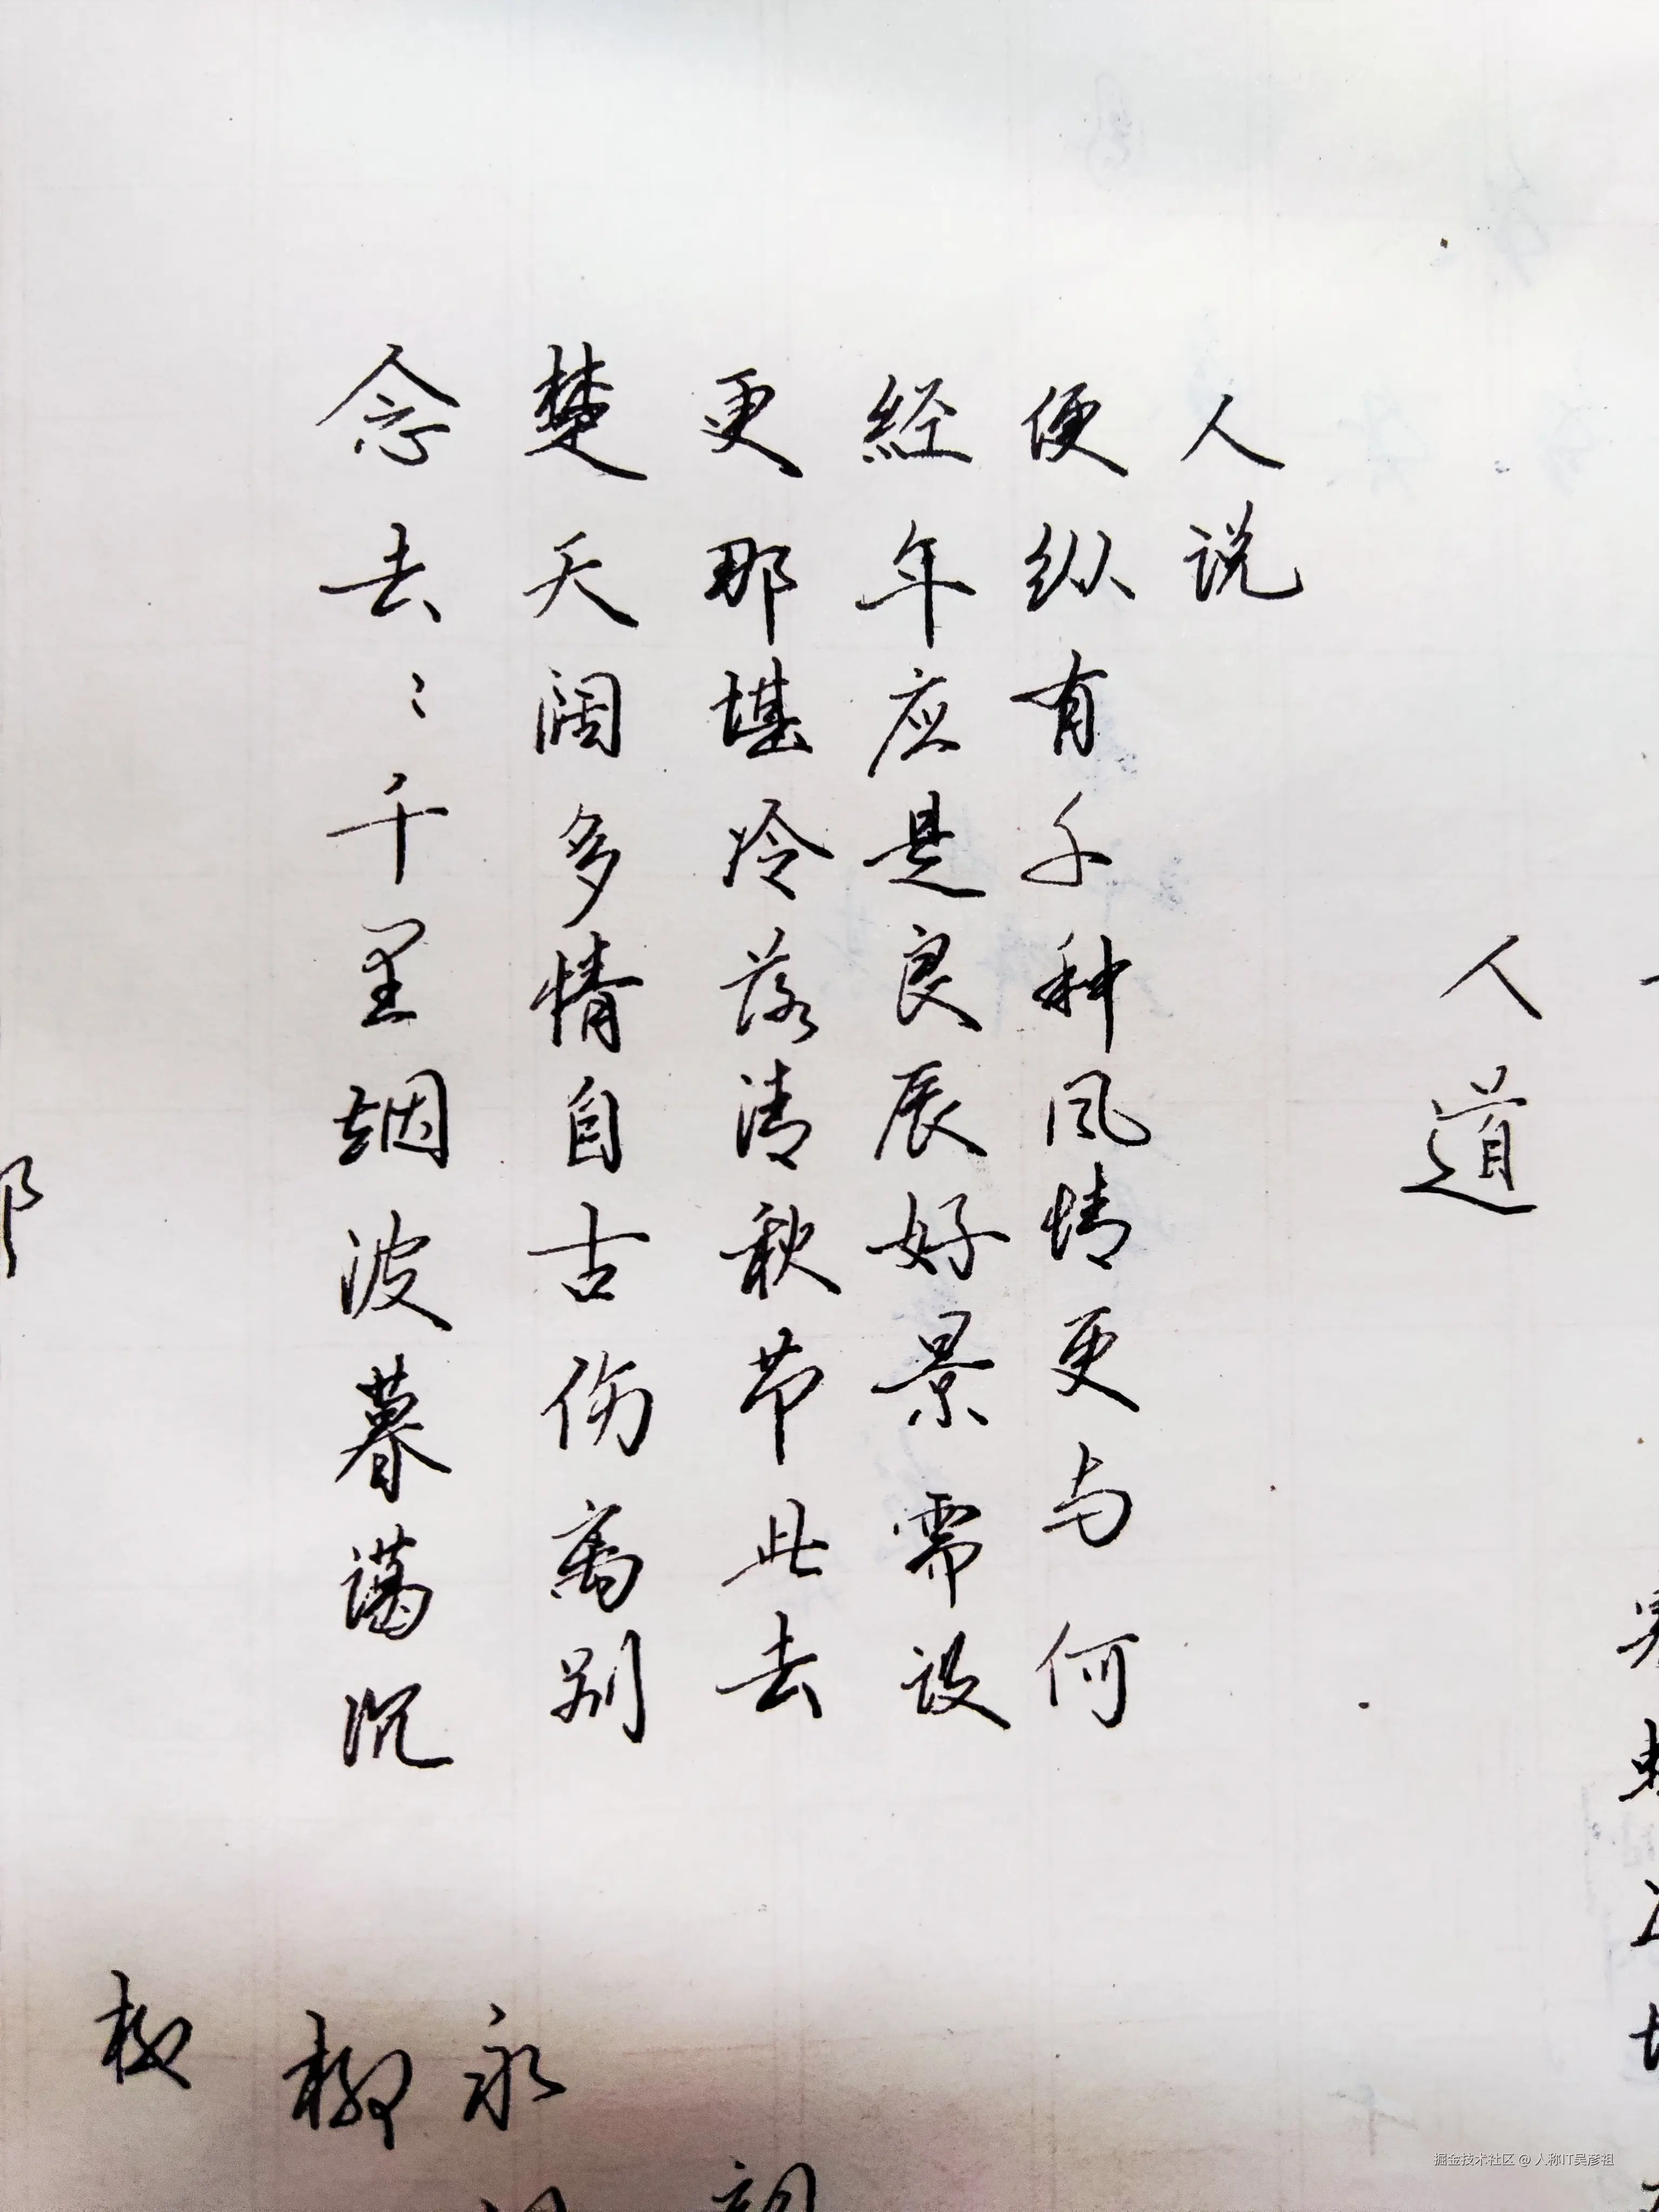 念去々千里烟波暮蔼沉
楚天阔多情自古伤离别
更那堪冷落清秋节此去
经年应是良辰好景需设
便纵有千种风情更与何
人说
人道
柳
永
掘金技术社区 @ 人称IT吴彦祖